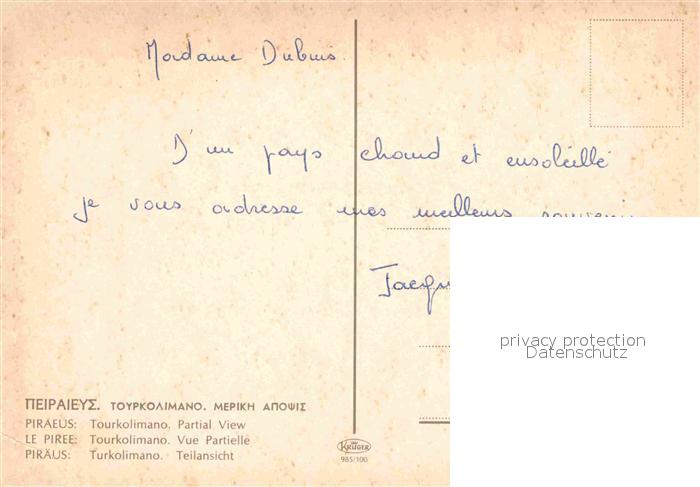 Madame Dubuis
D'un pays chaud et ensoleillé
je vous adresse mes meilleurs
ΠΕΙΡΑΙΕΥΣ. ΤΟΥΡΚΟΛΙΜΑΝΟ. ΜΕΡΙΚΗ ΑΠΟΨΙΣ
PIRAEUS: Tourkolimano. Partial View
LE PIREE: Tourkolimano. Vue Partielle
PIRÄUS: Turkolimano. Teilansicht
KRÜGER
985/100
privacy protection
Datenschutz